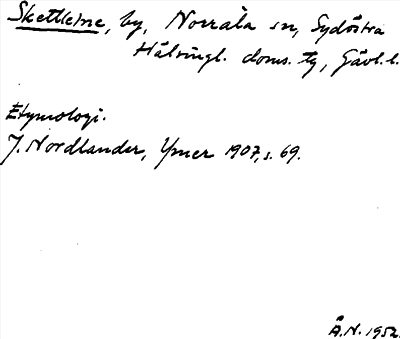 Skettlene, by, Norrala sn, Sydöstra
Hälsingl. doms. tg, Gävl. l.
Etymologi.
J. Nordlander, Ymer 1907, s. 69.
Å.N. 1952.